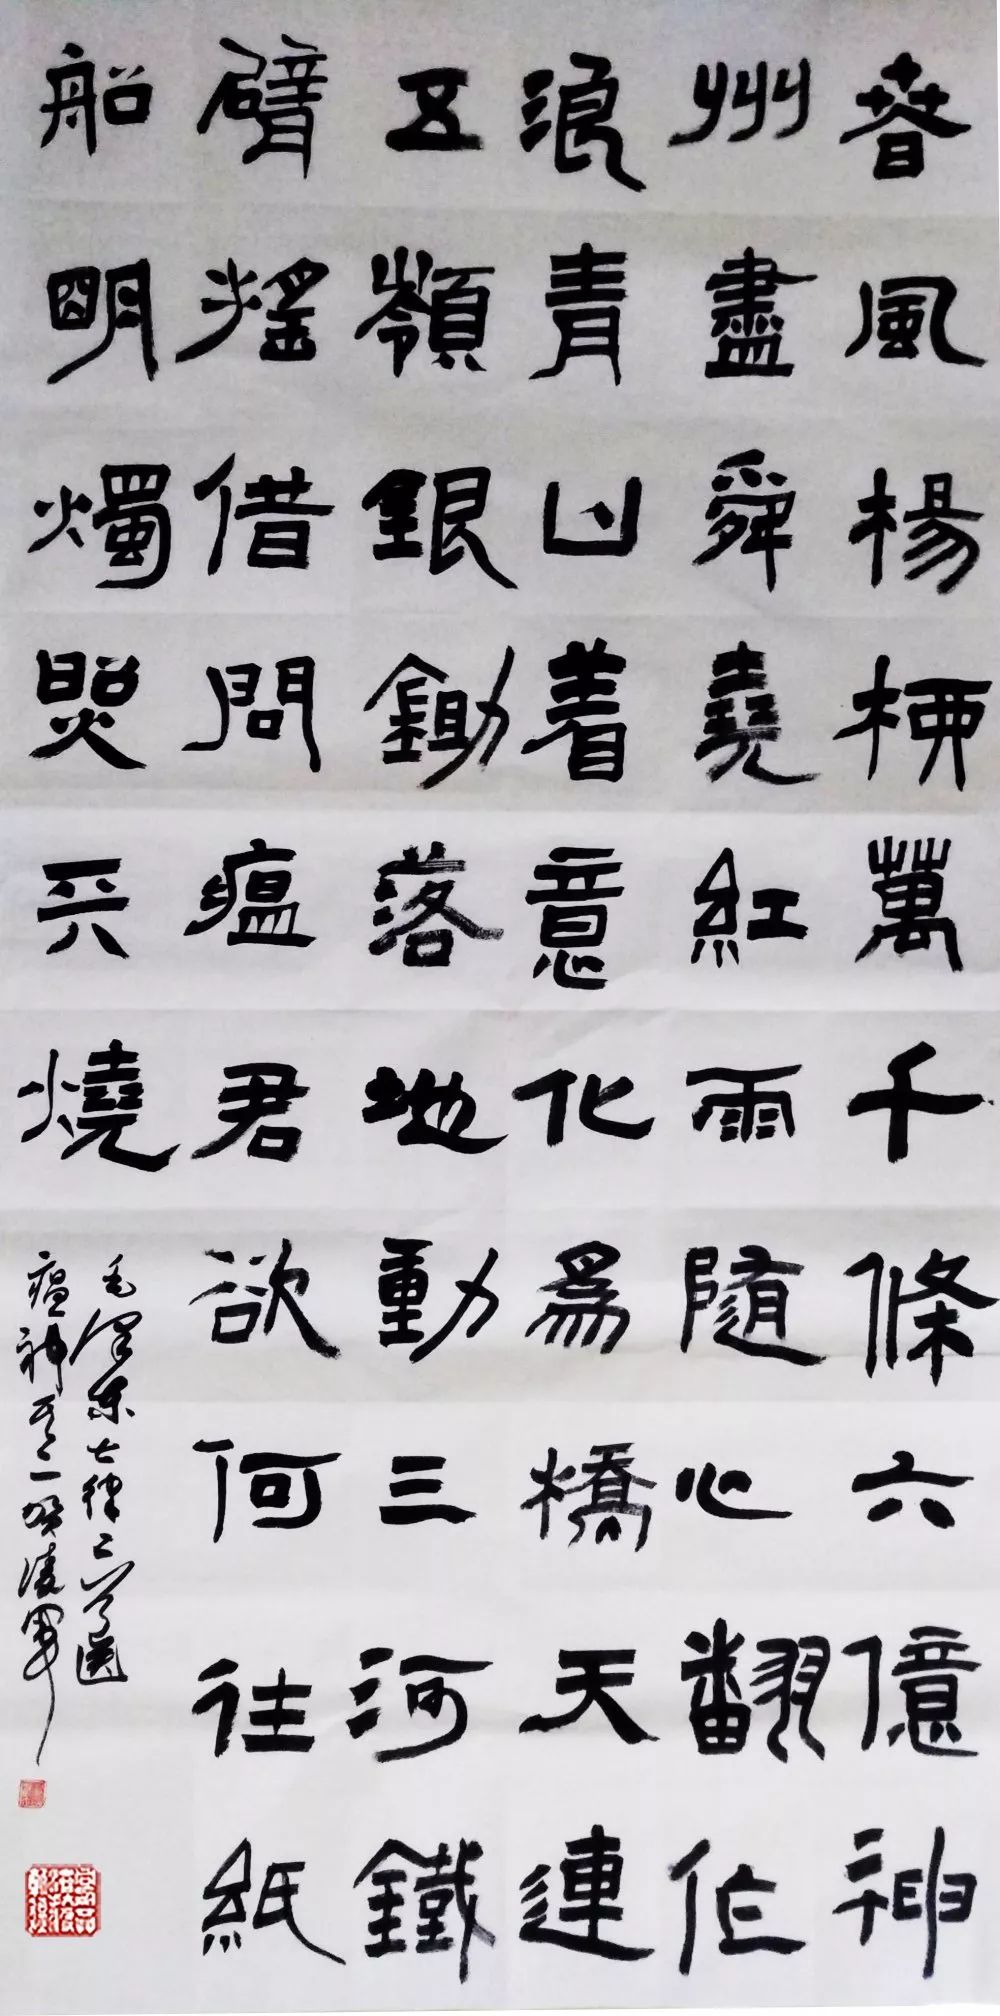 春風楊柳萬千條六億神
州盡舜堯紅雨隨心翻作
浪青山着意化為橋天連
五嶺銀鋤落地動三河鐵
臂搖借問瘟君欲何往紙
船明燭照天燒
毛澤東七律二首送
瘟神其二 凌軍